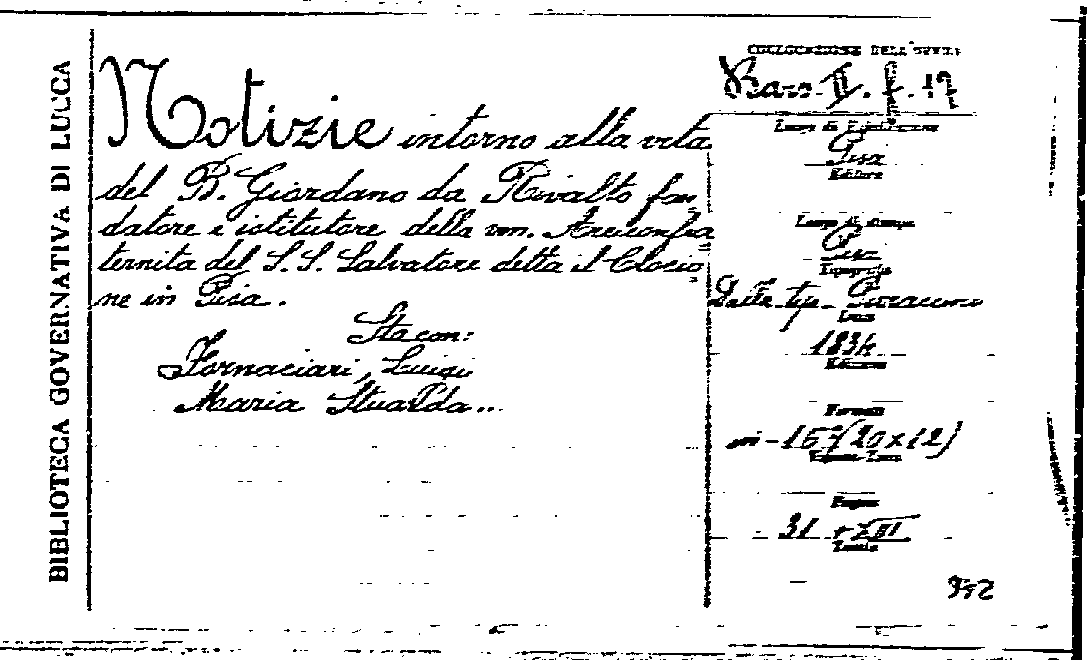 BIBLIOTECA GOVERNATIVA DI LUCCA
Notizie intorno alla vita
del B. Giordano da Rivalto fon
datore e istitutore della ven. Arciconfra
ternita del S.S. Salvatore detta il Crocio
ne in Pisa.
Sta con:
Fornaciari, Luigi
Maria Stuarda...
COLLOCAZIONE DELL'OPERA
Pisa
Editore
Luogo di stampa
Pisa
Tipografia
Dalla tip.
Data
1834
Edizione
Formato
in-16°(20x12)
Pagine
31 + XIII
Tavole